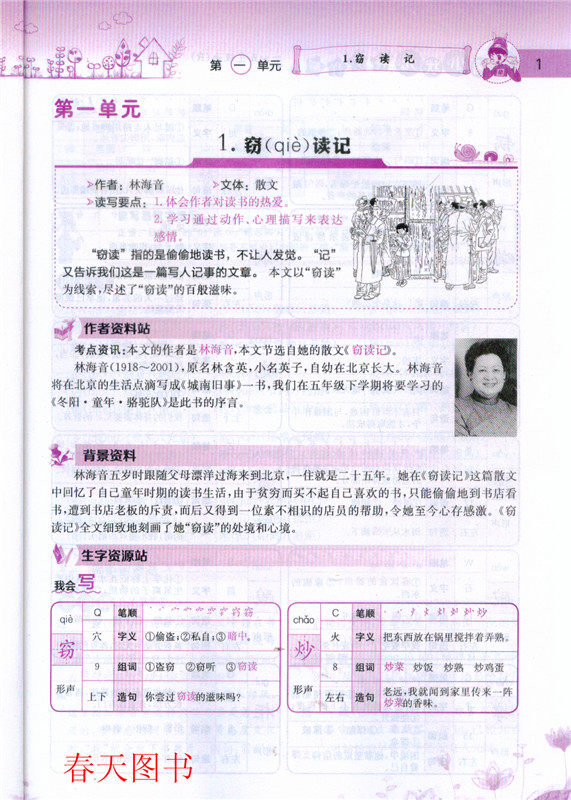 第一单元
1.窃 读 记
1
第一单元
1.窃(qiè)读记
➢作者：林海音 ➢文体：散文
➢读写要点：1.体会作者对读书的热爱。
2.学习通过动作、心理描写来表达
感情。
“窃读”指的是偷偷地读书，不让人发觉。“记”
又告诉我们这是一篇写人记事的文章。本文以“窃读”
为线索，尽述了“窃读”的百般滋味。
作者资料站
考点资讯：本文的作者是林海音，本文节选自她的散文《窃读记》。
林海音(1918~2001)，原名林含英，小名英子，自幼在北京长大。林海音
将在北京的生活点滴写成《城南旧事》一书，我们在五年级下学期将要学习的
《冬阳·童年·骆驼队》是此书的序言。
背景资料
林海音五岁时跟随父母漂洋过海来到北京，一住就是二十五年。她在《窃读记》这篇散文
中回忆了自己童年时期的读书生活，由于贫穷而买不起自己喜欢的书，只能偷偷地到书店看
书，遭到书店老板的斥责，而后又得到一位素不相识的店员的帮助，令她至今心存感激。《窃
读记》全文细致地刻画了她“窃读”的处境和心境。
生字资源站
我会写
qiè Q 笔顺
窃 穴 字义 ①偷盗；②私自；③暗中。
9 组词 ①盗窃 ②窃听 ③窃读
形声 上下 造句 你尝过窃读的滋味吗？
chǎo C 笔顺
炒 火 字义 把东西放在锅里搅拌着弄熟。
8 组词 炒菜 炒饭 炒熟 炒鸡蛋
形声 左右 造句 老远，我就闻到家里传来一阵
炒菜的香味。
春天图书